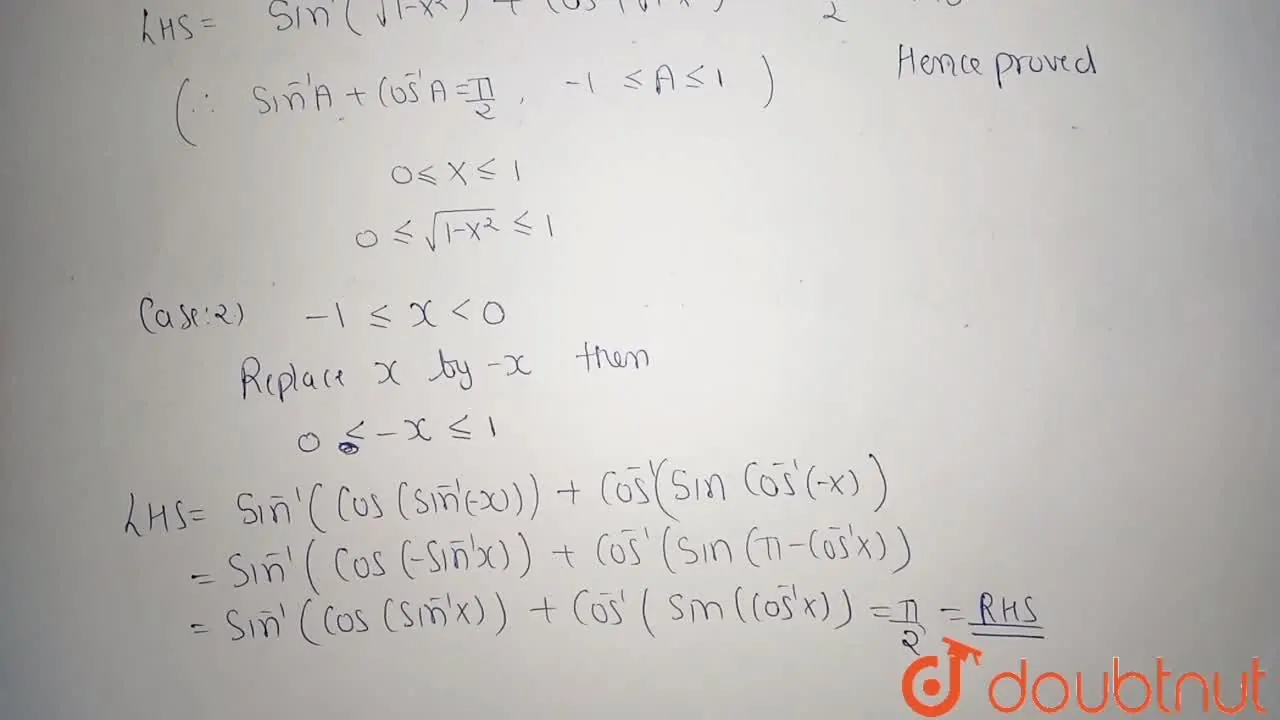 LHS = Sin⁻¹(√1-x²) + Cos⁻¹(√1-x²) 2
Hence proved
(∵ Sin⁻¹A + Cos⁻¹A = π/2 , -1 ≤ A ≤ 1 )
0 ≤ x ≤ 1
0 ≤ √1-x² ≤ 1
Case:2) -1 ≤ x < 0
Replace x by -x then
0 ≤ -x ≤ 1
LHS = Sin⁻¹(Cos (Sin⁻¹(-x))) + Cos⁻¹(Sin Cos⁻¹(-x))
= Sin⁻¹(Cos (-Sin⁻¹x)) + Cos⁻¹(Sin (π-Cos⁻¹x))
= Sin⁻¹(Cos (Sin⁻¹x)) + Cos⁻¹(Sin (Cos⁻¹x)) = π/2 = RHS
doubtnut